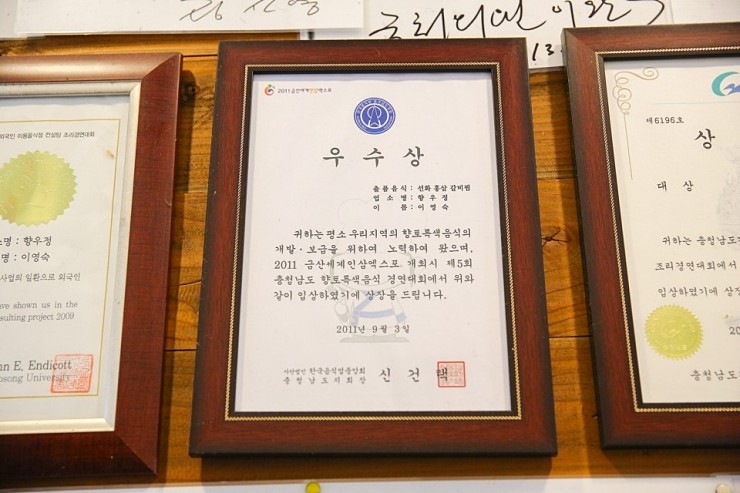 금회디면 이한
13.
외국인 이용음식점 컨설팅 조리경연대회
소명 : 향우정
명 : 이영숙
사업의 일환으로 외국인
ve shown us in the
sulting project 2009
nn E. Endicott
song University
2011금산세계인삼엑스포
우 수 상
출품음식 : 선화 홍삼 갈비찜
업 소 명 : 향 우 정
이 름 : 이 영 숙
귀하는 평소 우리지역의 향토록색음식의
개발·보급을 위하여 노력하여 왔으며,
2011 금산세계인삼엑스포 개최시 제5회
충청남도 향토록색음식 경연대회에서 위와
같이 입상하였기에 상장을 드립니다.
2011년 9월 3일
사단법인 한국음식업중앙회
충청남도지회장 신 건 택
제6196호
상
대 상
귀하는 충청남도
조리경연대회에서
입상하였기에 상장
20
충청남도